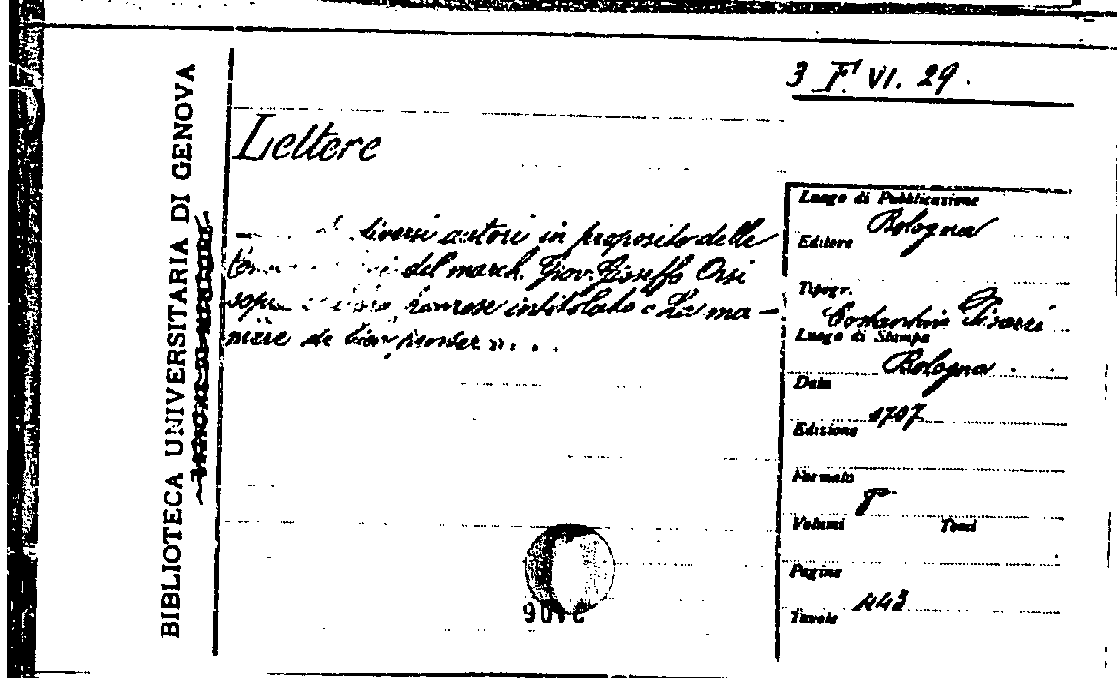 3 F. VI. 29.
BIBLIOTECA UNIVERSITARIA DI GENOVA
Lettere
diversi autori in proposito delle
del march. Giov. Gioseffo Orsi
intitolato "La ma-
nière de bien penser" . . .
Luogo di Pubblicazione
Bologna
Editore
Tipogr.
Costantin Pisarri
Luogo di Stampa
Bologna
Data
1707
Edizione
Formato
8°
Volumi Tomi
Pagine
443
Tavole